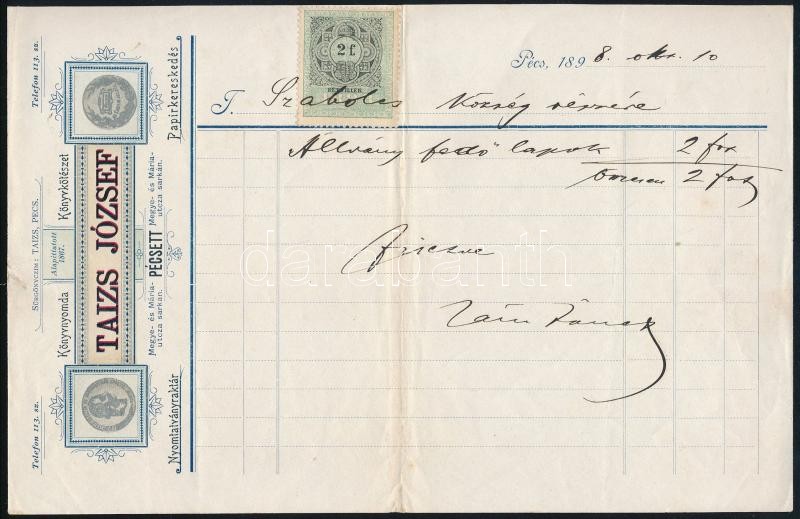 Telefon 113. sz.
Papirkereskedés
Könyvkötészet
SÜRGÖNYCZIM: TAIZS, PÉCS.
Alapíttatott 1867.
TAIZS JÓZSEF
Megye- és Mária-utcza sarkán.
PÉCSETT
Megye- és Mária-utcza sarkán.
Könyvnyomda
Nyomtatványraktár
Telefon 113. sz.
2 f
Pécs, 1898 okt. 10
T. Szabolcs község részére
Állvány fedő lapok 2 frt
2 frt
Fizetve
darabanth